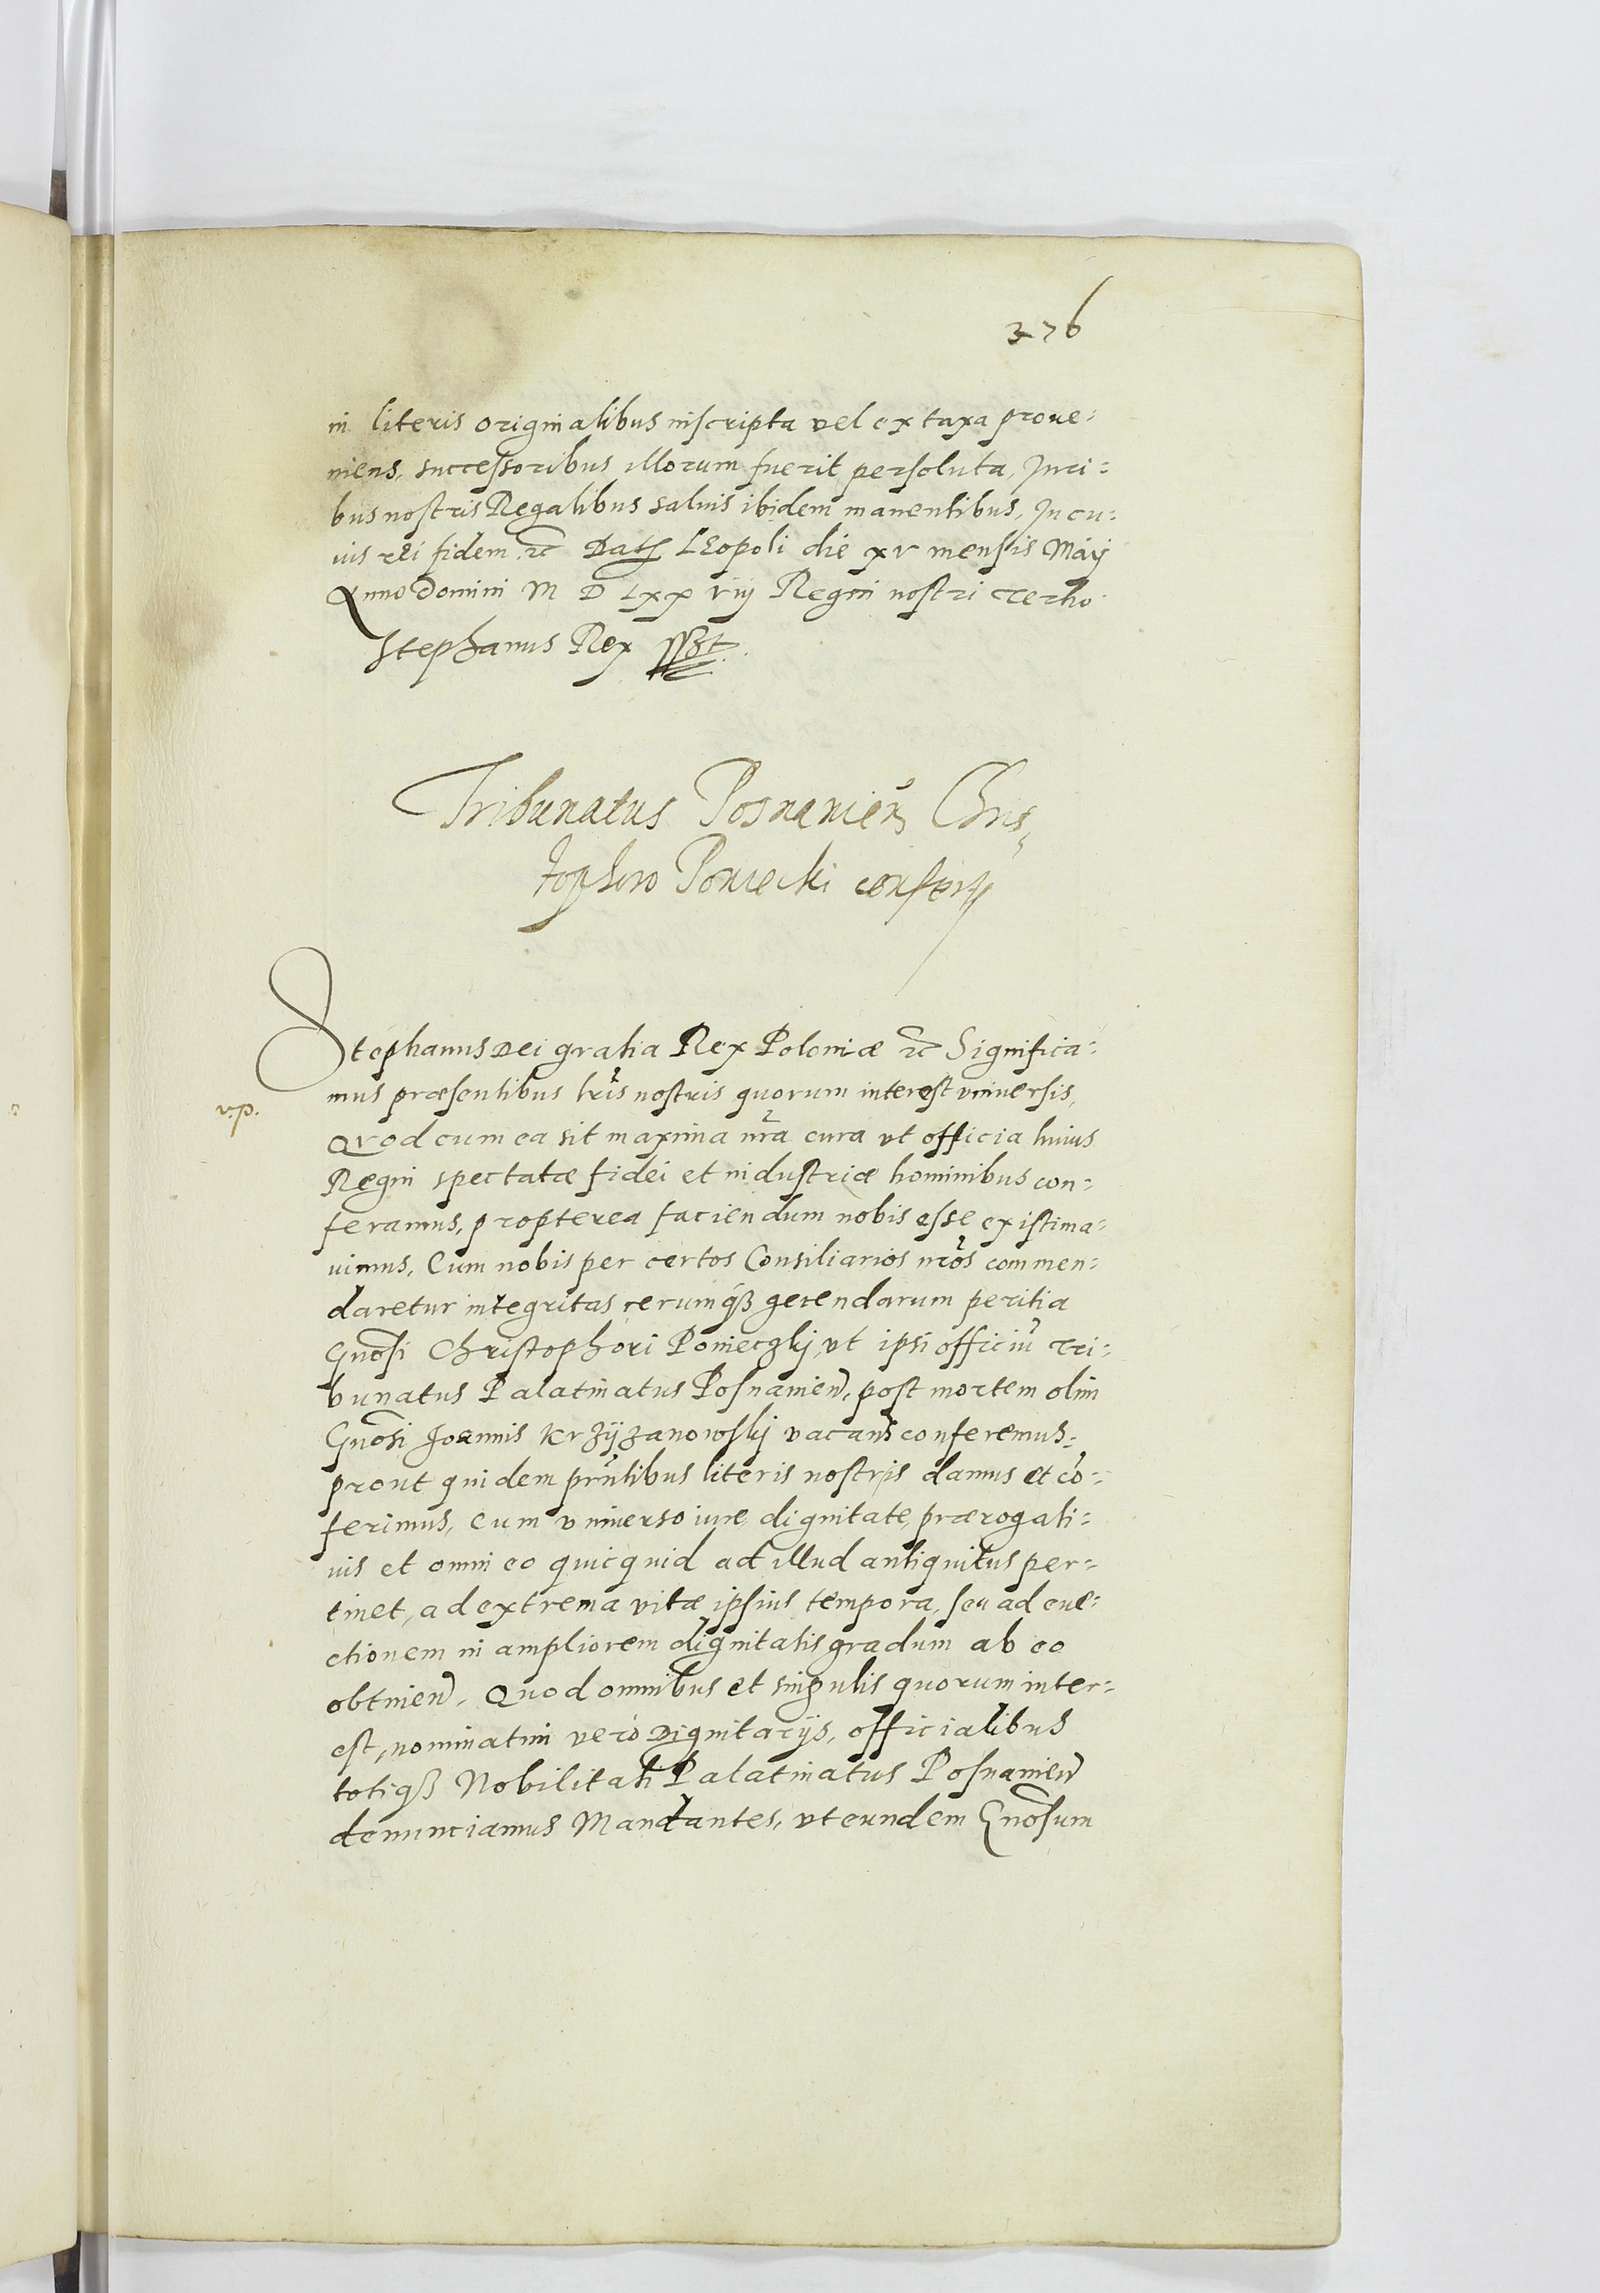 376
in literis originalibus inscripta vel ex taxa proue=
niens, successoribus illorum fuerit persoluta, Juri=
bus nostris Regalibus saluis ibidem manentibus, In cu=
uis rei fidem, etc Dat Leopoli die xv mensis Maij
Anno Domini M D Lxx viij Regni nostri tertio
Stephanus Rex
Tribunatus Posnanien Chris=
tophoro Poniecki confert
Stephanus Dei gratia Rex Poloniæ etc Significa=
mus præsentibus lris nostris quorum interest vniuersis,
v.p.
Quod cum ea sit maxima nra cura vt officia huius
Regni spectatæ fidei et industriæ hominibus con=
feramus, propterea faciendum nobis esse existima=
uimus, Cum nobis per certos Consiliarios nros commen=
daretur integritas rerumqß gerendarum peritia
Gnosi Christophori Ponieczkj, vt ipsi officiũ Tri=
bunatus Palatinatus Posnanien, post mortem olim
Gnosi Joannis Krzÿzanowskj vacans conferemus=
prout quidem prntibus literis nostris damus et cõ=
ferimus, Cum vniuerso iure, dignitate, prærogati=
uis et omni eo quicquid ad illud antiquitus per=
tinet, ad extrema vitæ ipsius tempora, seu ad eue=
ctionem in ampliorem dignitatis gradum ab eo
obtinen, Quod omnibus et singulis quorum inter=
est, nominatim vero Dignitarijs, officialibus
totiqß Nobilitati Palatinatus Posnanien
denunciamus Mandantes, vt eundem Gnosum